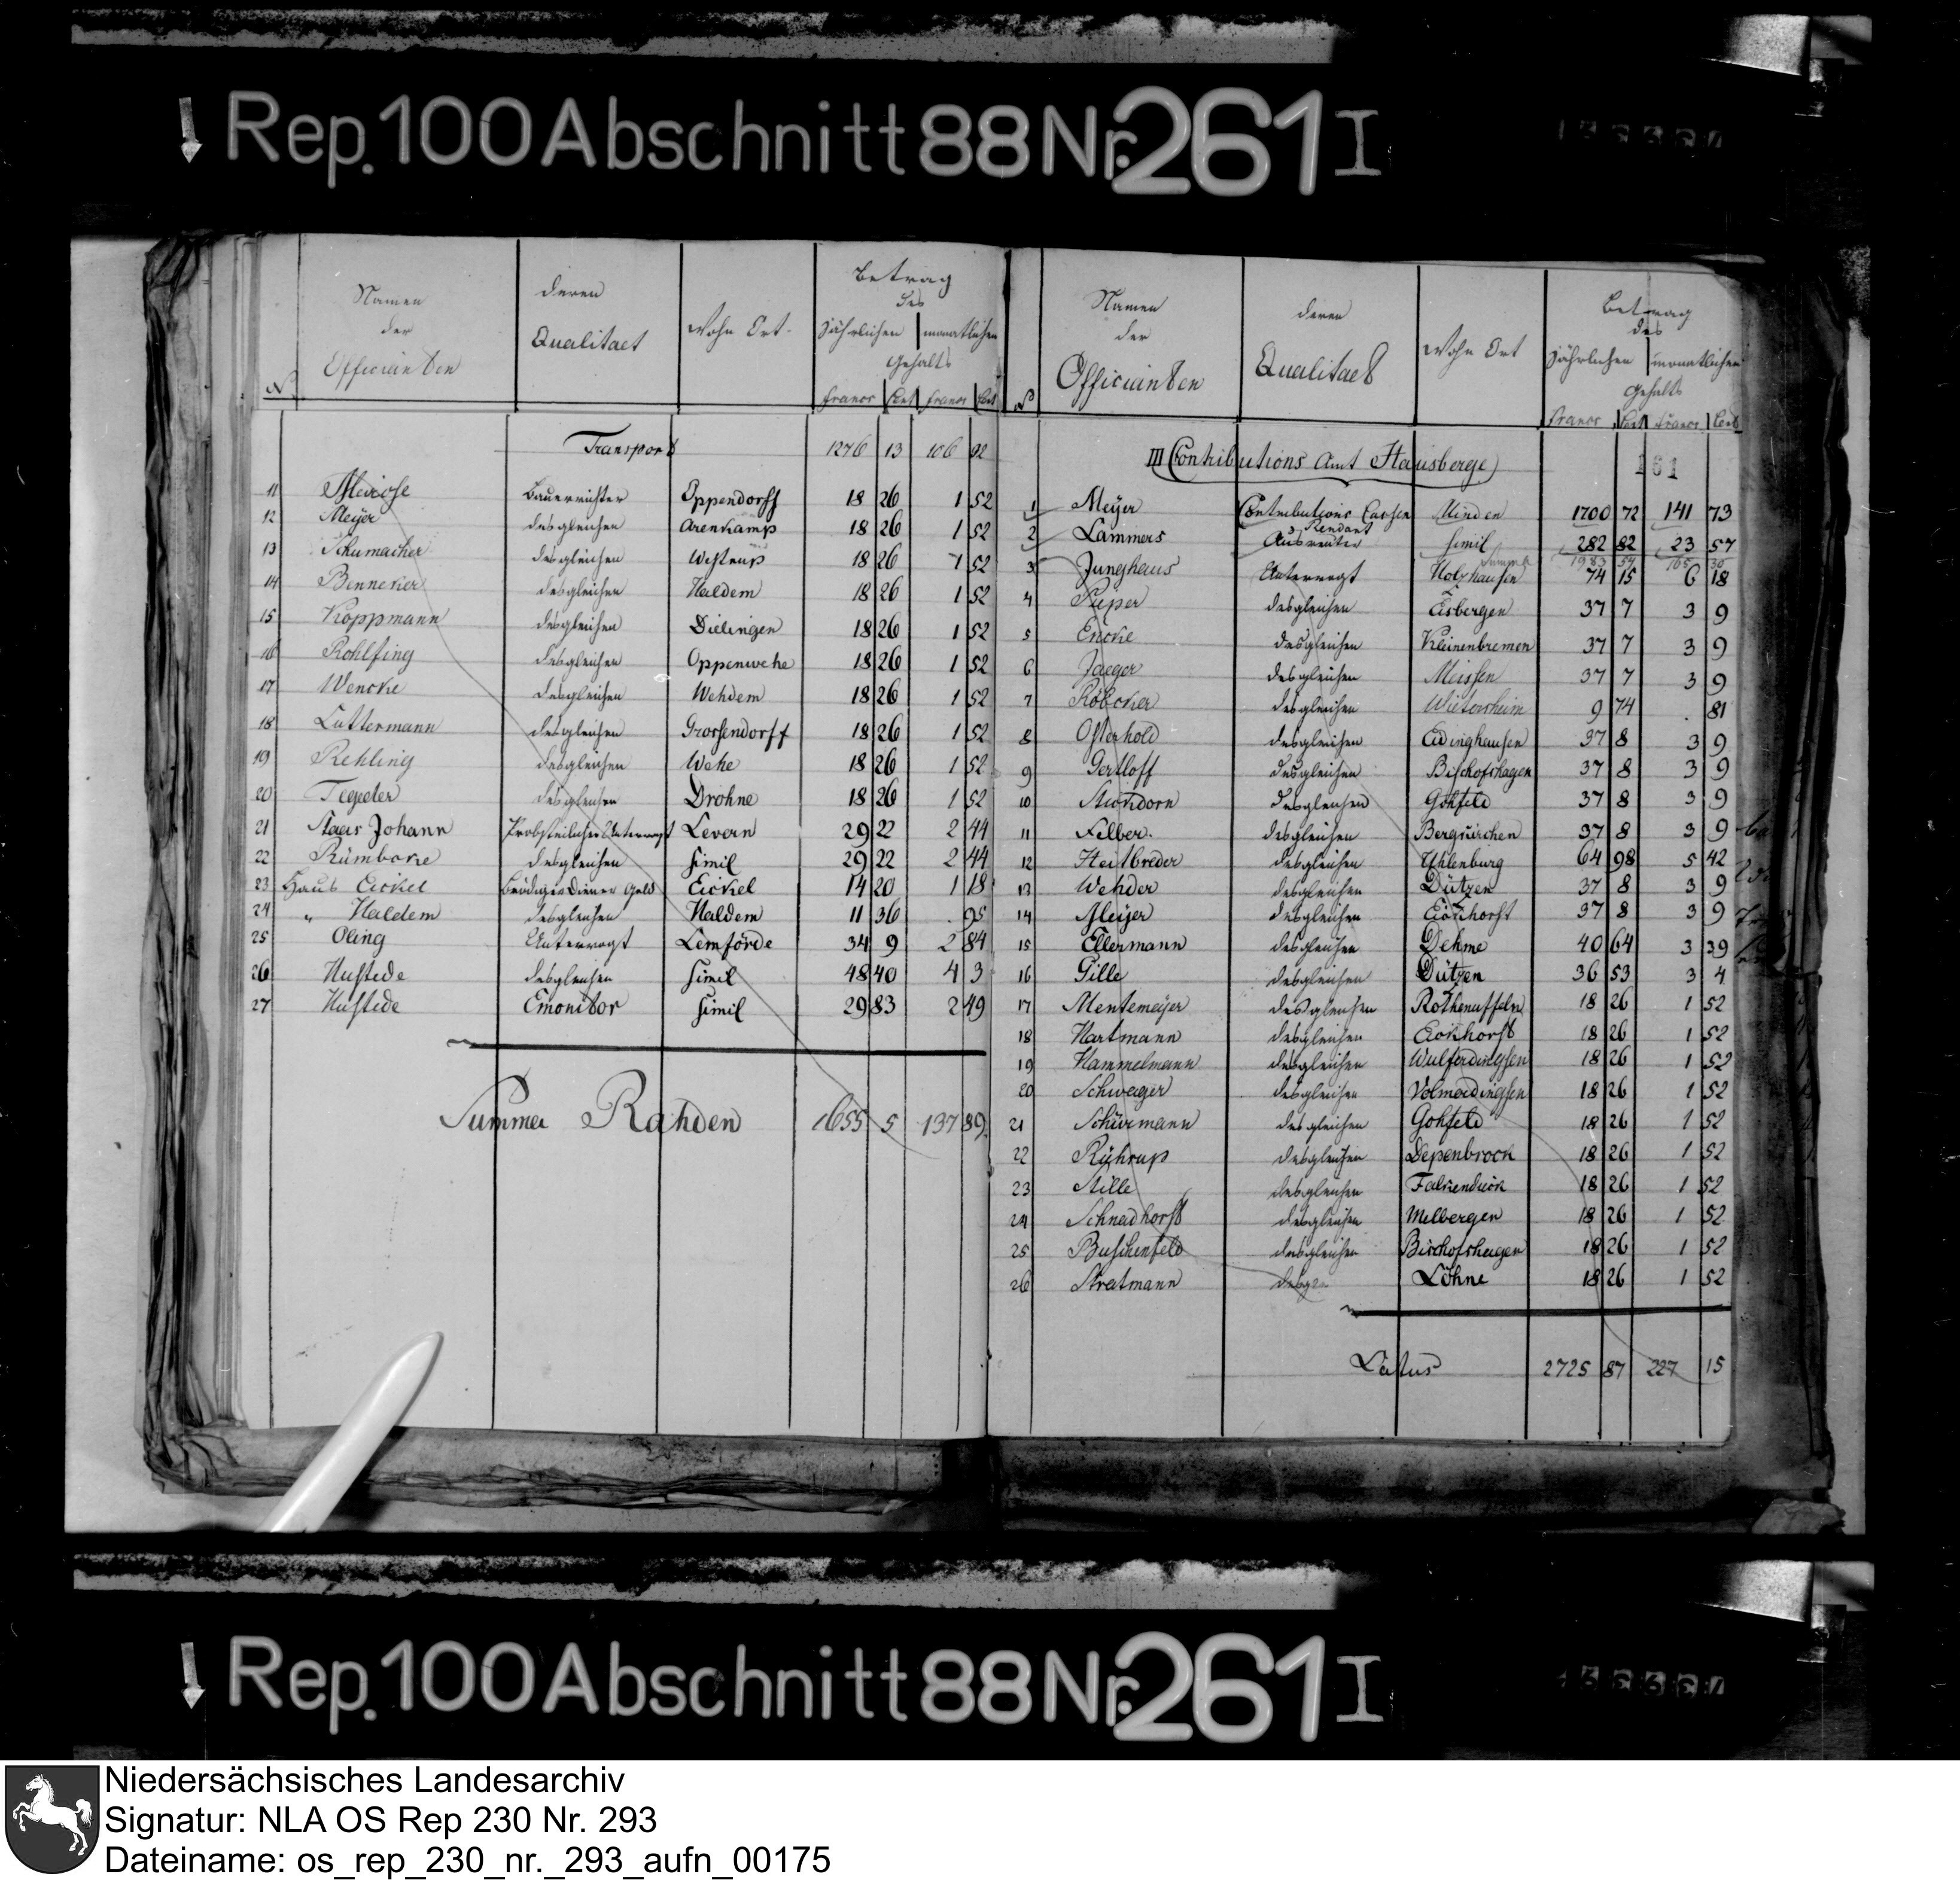 Rep. 100 Abschnitt 88 Nr. 261 I
Namen der Officianten
deren Qualitaet
Wohn Ort
Betrag des
jährlichen | monatlichen
Gehalts
N
francs Cent francs Cent
Transport 1276 13 106 92
11 Meirose Bauerrichter Oppendorff 18 26 1 52
12 Meyer desgleichen Arenkamp 18 26 1 52
13 Schumacher desgleichen Westrup 18 26 1 52
14 Benneker desgleichen Haldem 18 26 1 52
15 Koppmann desgleichen Dielingen 18 26 1 52
16 Rohlfing desgleichen Oppenwehe 18 26 1 52
17 Wencke desgleichen Wehdem 18 26 1 52
18 Luttermann desgleichen Grossendorff 18 26 1 52
19 Rehling desgleichen Wehe 18 26 1 52
20 Tegeder desgleichen Drohne 18 26 1 52
21 Staas Johann Probsteilicher Untervogt Levern 29 22 2 44
22 Rümboke desgleichen simil 29 22 2 44
23 Haus Eickel Eickel 14 20 1 18
24 " Haldem desgleichen Haldem 11 36 . 95
25 Oling Untervogt Lemförde 34 9 2 84
26 Hustede desgleichen simil 48 40 4 3
27 Hustede Emonitor simil 29 83 2 49
Summa Rahden 1655 5 137 89
Namen der Officianten
deren Qualitaet
Wohn Ort
Betrag des
jährlichen | monatlichen
Gehalts
N
francs Cent francs Cent
III Contributions Amt Hausberge
161
1 Meyer Contributions Cassen Rendant Minden 1700 72 141 73
2 Lammers Ausreuter simil 282 82 23 57
Summa 1983 54 165 30
3 Junghaus Untervogt Holzhausen 74 15 6 18
4 Pieper desgleichen Eisbergen 37 7 3 9
5 Encke desgleichen Kleinenbremen 37 7 3 9
6 Jaeger desgleichen Meissen 37 7 3 9
7 Röbcker desgleichen Wietersheim 9 74 . 81
8 Osterhold desgleichen Eidinghausen 37 8 3 9
9 Gertloff desgleichen Bischofshagen 37 8 3 9
10 Stickdorn desgleichen Gohfeld 37 8 3 9
11 Felber. desgleichen Bergkirchen 37 8 3 9
12 Heitbreder desgleichen Uhlenburg 64 98 5 42
13 Wehder desgleichen Dützen 37 8 3 9
14 Meyer desgleichen Eickhorst 37 8 3 9
15 Ellermann desgleichen Dehme 40 64 3 39
16 Gille desgleichen Dützen 36 53 3 4
17 Mentemeyer desgleichen Rothenuffeln 18 26 1 52
18 Hartmann desgleichen Eickhorst 18 26 1 52
19 Hammelmann desgleichen Wulferdingsen 18 26 1 52
20 Schwager desgleichen Volmerdingsen 18 26 1 52
21 Schürmann desgleichen Gohfeld 18 26 1 52
22 Rührup desgleichen Depenbrock 18 26 1 52
23 Stille desgleichen Falkendiek 18 26 1 52
24 Schnadhorst desgleichen Melbergen 18 26 1 52
25 Buschenfeld desgleichen Bischofshagen 18 26 1 52
26 Stratmann desgl. Löhne 18 26 1 52
Latus 2725 87 227 15
Rep. 100 Abschnitt 88 Nr. 261 I
Niedersächsisches Landesarchiv
Signatur: NLA OS Rep 230 Nr. 293
Dateiname: os_rep_230_nr._293_aufn_00175